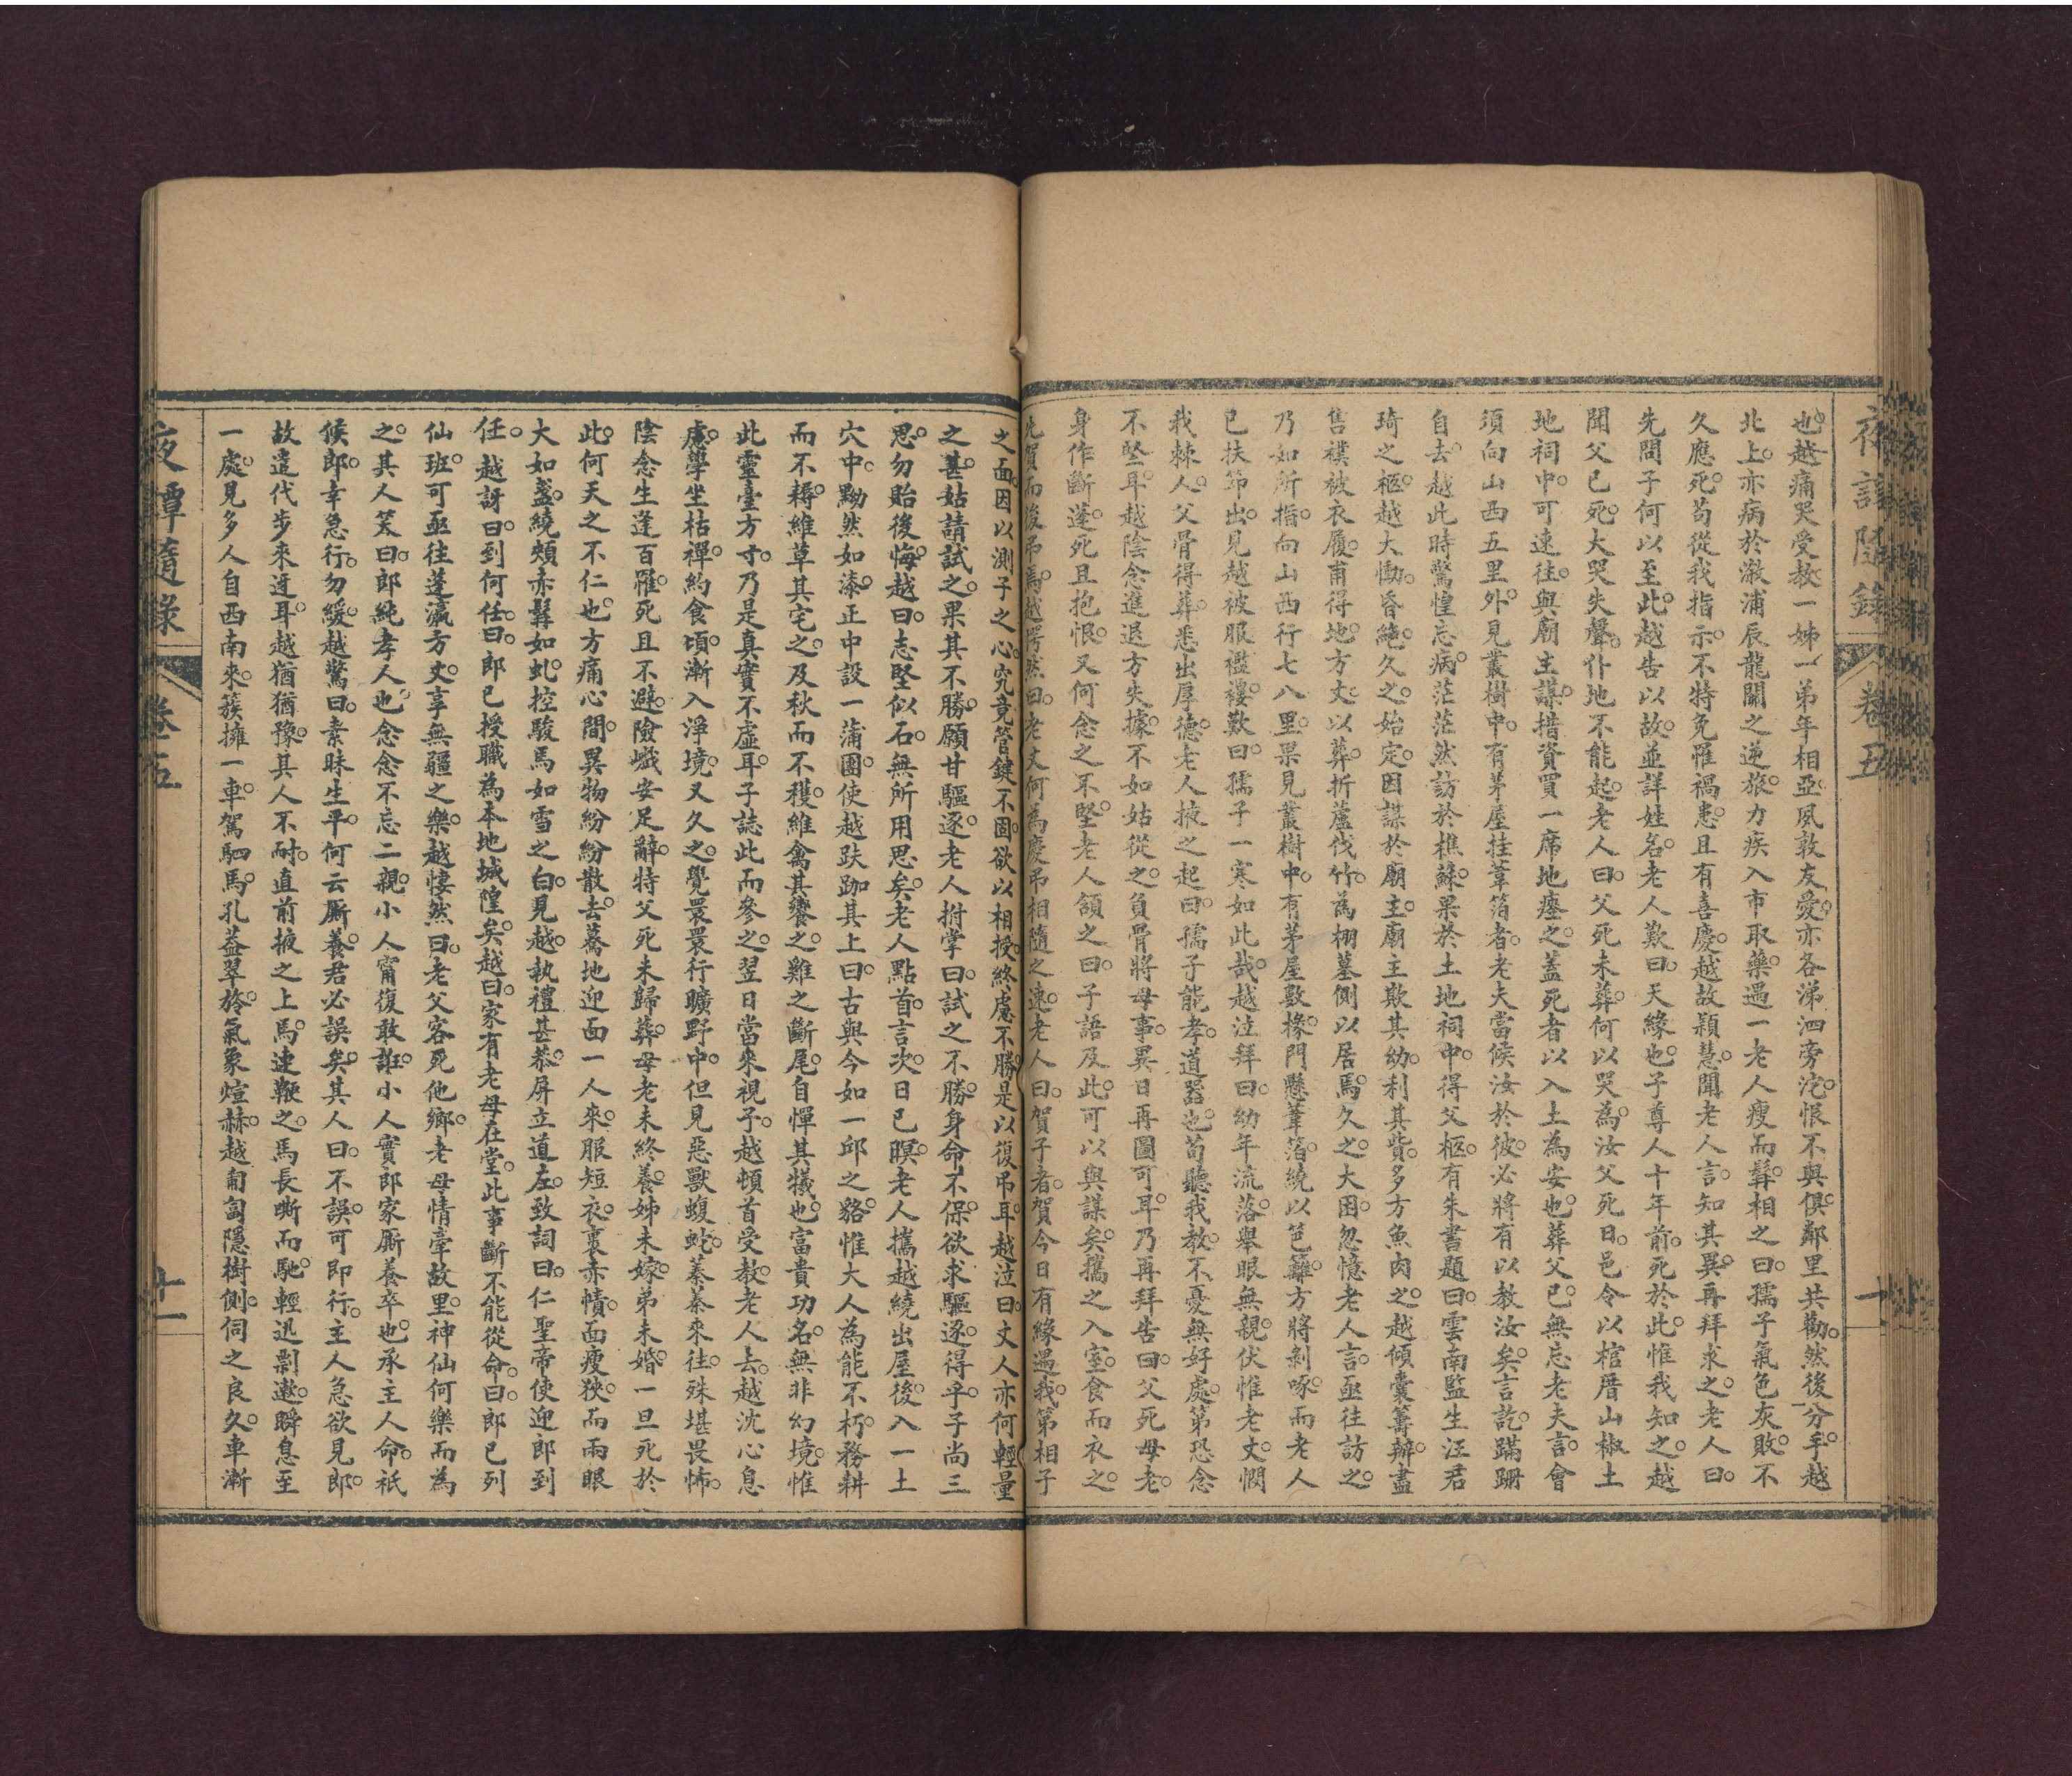 夜譚隨錄 卷五 十一
也。越痛哭受教。一姊一弟年相亞。夙敦友愛。亦各涕泗滂沱。恨不與俱。鄰里共勸。然後分手。越
北上。亦病於漵浦辰龍關之逆旅。力疾入市取藥。過一老人瘦而髯。相之曰。孺子氣色灰敗。不
久應死。苟從我指示。不特免罹禍患。且有喜慶。越故穎慧。聞老人言。知其異。再拜求之。老人曰。
先問子何以至此。越告以故。並詳姓名。老人歎曰。天緣也。子尊人十年前死於此。惟我知之。越
聞父已死。大哭失聲。仆地不能起。老人曰。父死未葬。何以哭為。汝父死日。邑令以棺厝山椒土
地祠中。可速往。與廟主謀。措資買一席地瘞之。蓋死者以入土為安也。葬父已。無忘老夫言。會
須向山西五里外。見叢樹中。有茅屋挂葦箔者。老夫當候汝於彼。必將有以教汝矣。言訖蹣跚
自去。越此時驚惶忘病。茫茫然訪於樵蘇。果於土地祠中。得父柩。有朱書題曰。雲南監生汪君
琦之柩。越大慟。昏絕久之。始定。因謀於廟主。廟主欺其幼。利其貲。多方魚肉之。越傾囊籌辦。盡
售襆被衣履。甫得地方丈。以葬。折蘆伐竹。為棚墓側以居焉。久之。大困。忽憶老人言。亟往訪之。
乃如所指。向山西行七八里。果見叢樹中。有茅屋數椽。門懸葦箔。繞以笆籬。方將剝啄。而老人
已扶筇出。見越被服襤褸。歎曰。孺子一寒如此哉。越泣拜曰。幼年流落。舉眼無親。伏惟老丈憫
我棘人。父骨得葬。悉出厚德。老人掖之起曰。孺子能孝。道器也。苟聽我教。不憂無好處。第恐念
不堅耳。越陰念進退方失據。不如姑從之。負骨將母事。異日再圖可耳。乃再拜告曰。父死母老。
身作斷蓬。死且抱恨。又何念之不堅。老人頷之曰。子語及此。可以與謀矣。攜之入室。食而衣之。
先賀而後弔焉。越愕然曰。老丈何為慶弔相隨之速。老人曰。賀子者。賀今日有緣遇我。第相子
之面。因以測子之心。究竟管鍵不固。欲以相授。終慮不勝。是以復弔耳。越泣曰。丈人亦何輕量
之甚。姑請試之。果其不勝。願甘驅逐。老人拊掌曰。試之不勝。身命不保。欲求驅逐。得乎。子尚三
思。勿貽後悔。越曰。志堅似石。無所用思矣。老人點首。言次。日已暝。老人攜越繞出屋後。入一土
穴中。黝然如漆。正中設一蒲團。使越趺跏其上。曰。古與今如一邱之貉。惟大人為能不朽。務耕
而不耨。維草其宅之。及秋而不穫。維禽其饗之。雞之斷尾。自憚其犧也。富貴功名。無非幻境。惟
此靈臺方寸。乃是真實不虛耳。子誌此而參之。翌日當來視子。越頓首受教。老人去。越沈心息
慮。學坐枯禪。約食頃。漸入淨境。又久之。覺睘睘行曠野中。但見惡獸蝮蛇。蓁蓁來往。殊堪畏怖。
陰念生逢百罹。死且不避。險巇安足辭。特父死未歸葬。母老未終養。姊未嫁。弟未婚。一旦死於
此。何天之不仁也。方痛心間。異物紛紛散去。驀地迎面一人來。服短衣。裹赤幘。面瘦狹。而兩眼
大如盞。繞頰赤髯如虬。控駿馬如雪之白。見越。執禮甚恭。屏立道左。致詞曰。仁聖帝使迎郎到
任。越訝曰。到何任。曰。郎已授職為本地城隍矣。越曰。家有老母在堂。此事斷不能從命。曰。郎已列
仙班。可亟往蓬瀛方丈。享無疆之樂。越悽然曰。老父客死他鄉。老母情牽故里。神仙何樂而為
之。其人笑曰。郎純孝人也。念念不忘二親。小人甯復敢誑。小人實郎家廝養卒也。承主人命。祇
候郎。幸急行。勿緩。越驚曰。素昧生平。何云廝養。君必誤矣。其人曰。不誤。可即行。主人急欲見郎。
故遣代步來迓耳。越猶猶豫。其人不耐。直前掖之上馬。連鞭之。馬長嘶而馳。輕迅剽遬。瞬息至
一處。見多人自西南來。簇擁一車。駕駟馬。孔蓋翠旍。氣象煊赫。越匍匐隱樹側。伺之良久。車漸
夜譚隨錄 卷五 十一